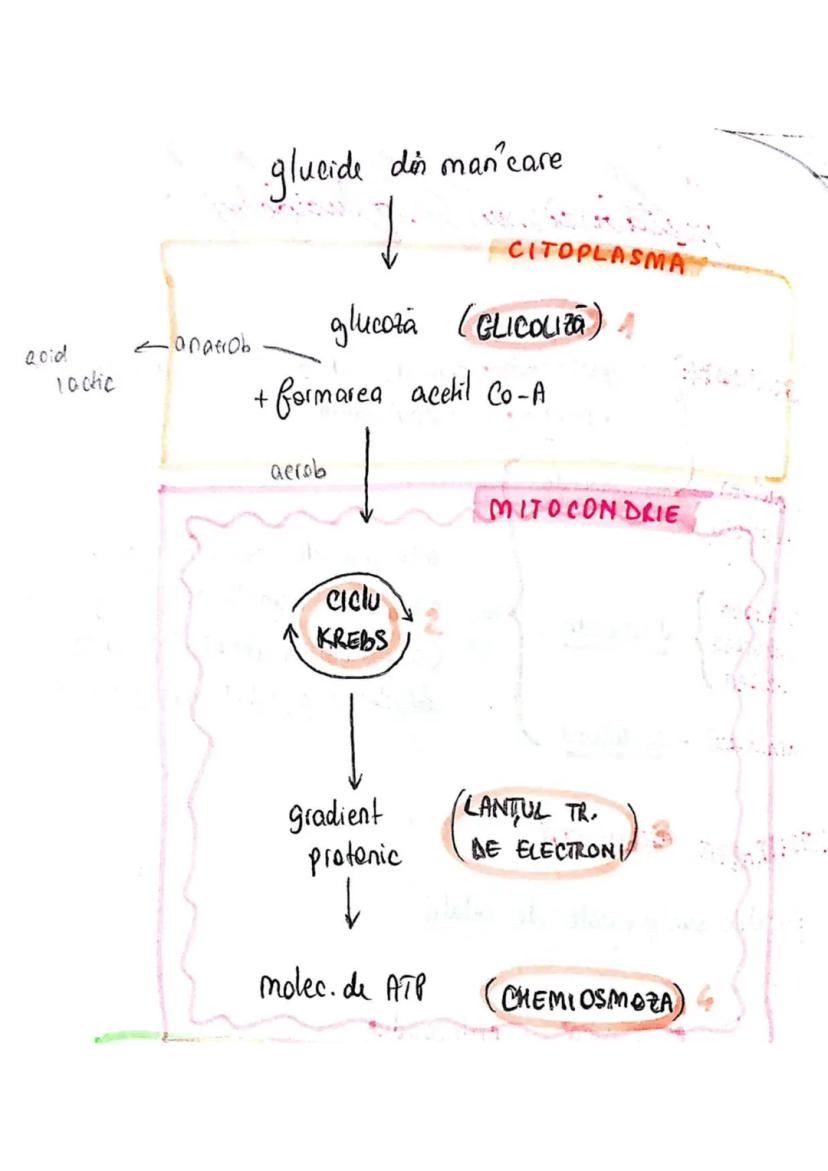 glucide din mâncare
CITOPLASMĂ
glucoză (GLICOLIZĂ) 1
acid lactic ← anaerob
+ formarea acetil Co-A
aerob
MITOCONDRIE
CICLU
KREBS 2
gradient
protonic
(LANȚUL TR.
DE ELECTRONI) 3
molec. de ATP (CHEMIOSMOZA) 4